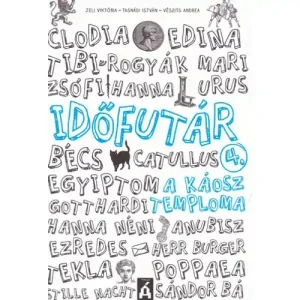 ZELI VIKTÓRIA - TASNÁDI ISTVÁN - VÉSZITS ANDREA
CLODIA EDINA
TIBI-ROGYÁK MARI
ZSÓFI! HANNA LURUS
IDŐFUTÁR
BÉCS CATULLUS 4.
EGYIPTOM A KÁOSZ
GOTTHARDI TEMPLOMA
HANNA NÉNI ANUBISZ
EZREDES HERR BURGER
TEKLA POPPAEA
STILLE NACHT SÁNDOR BÁ